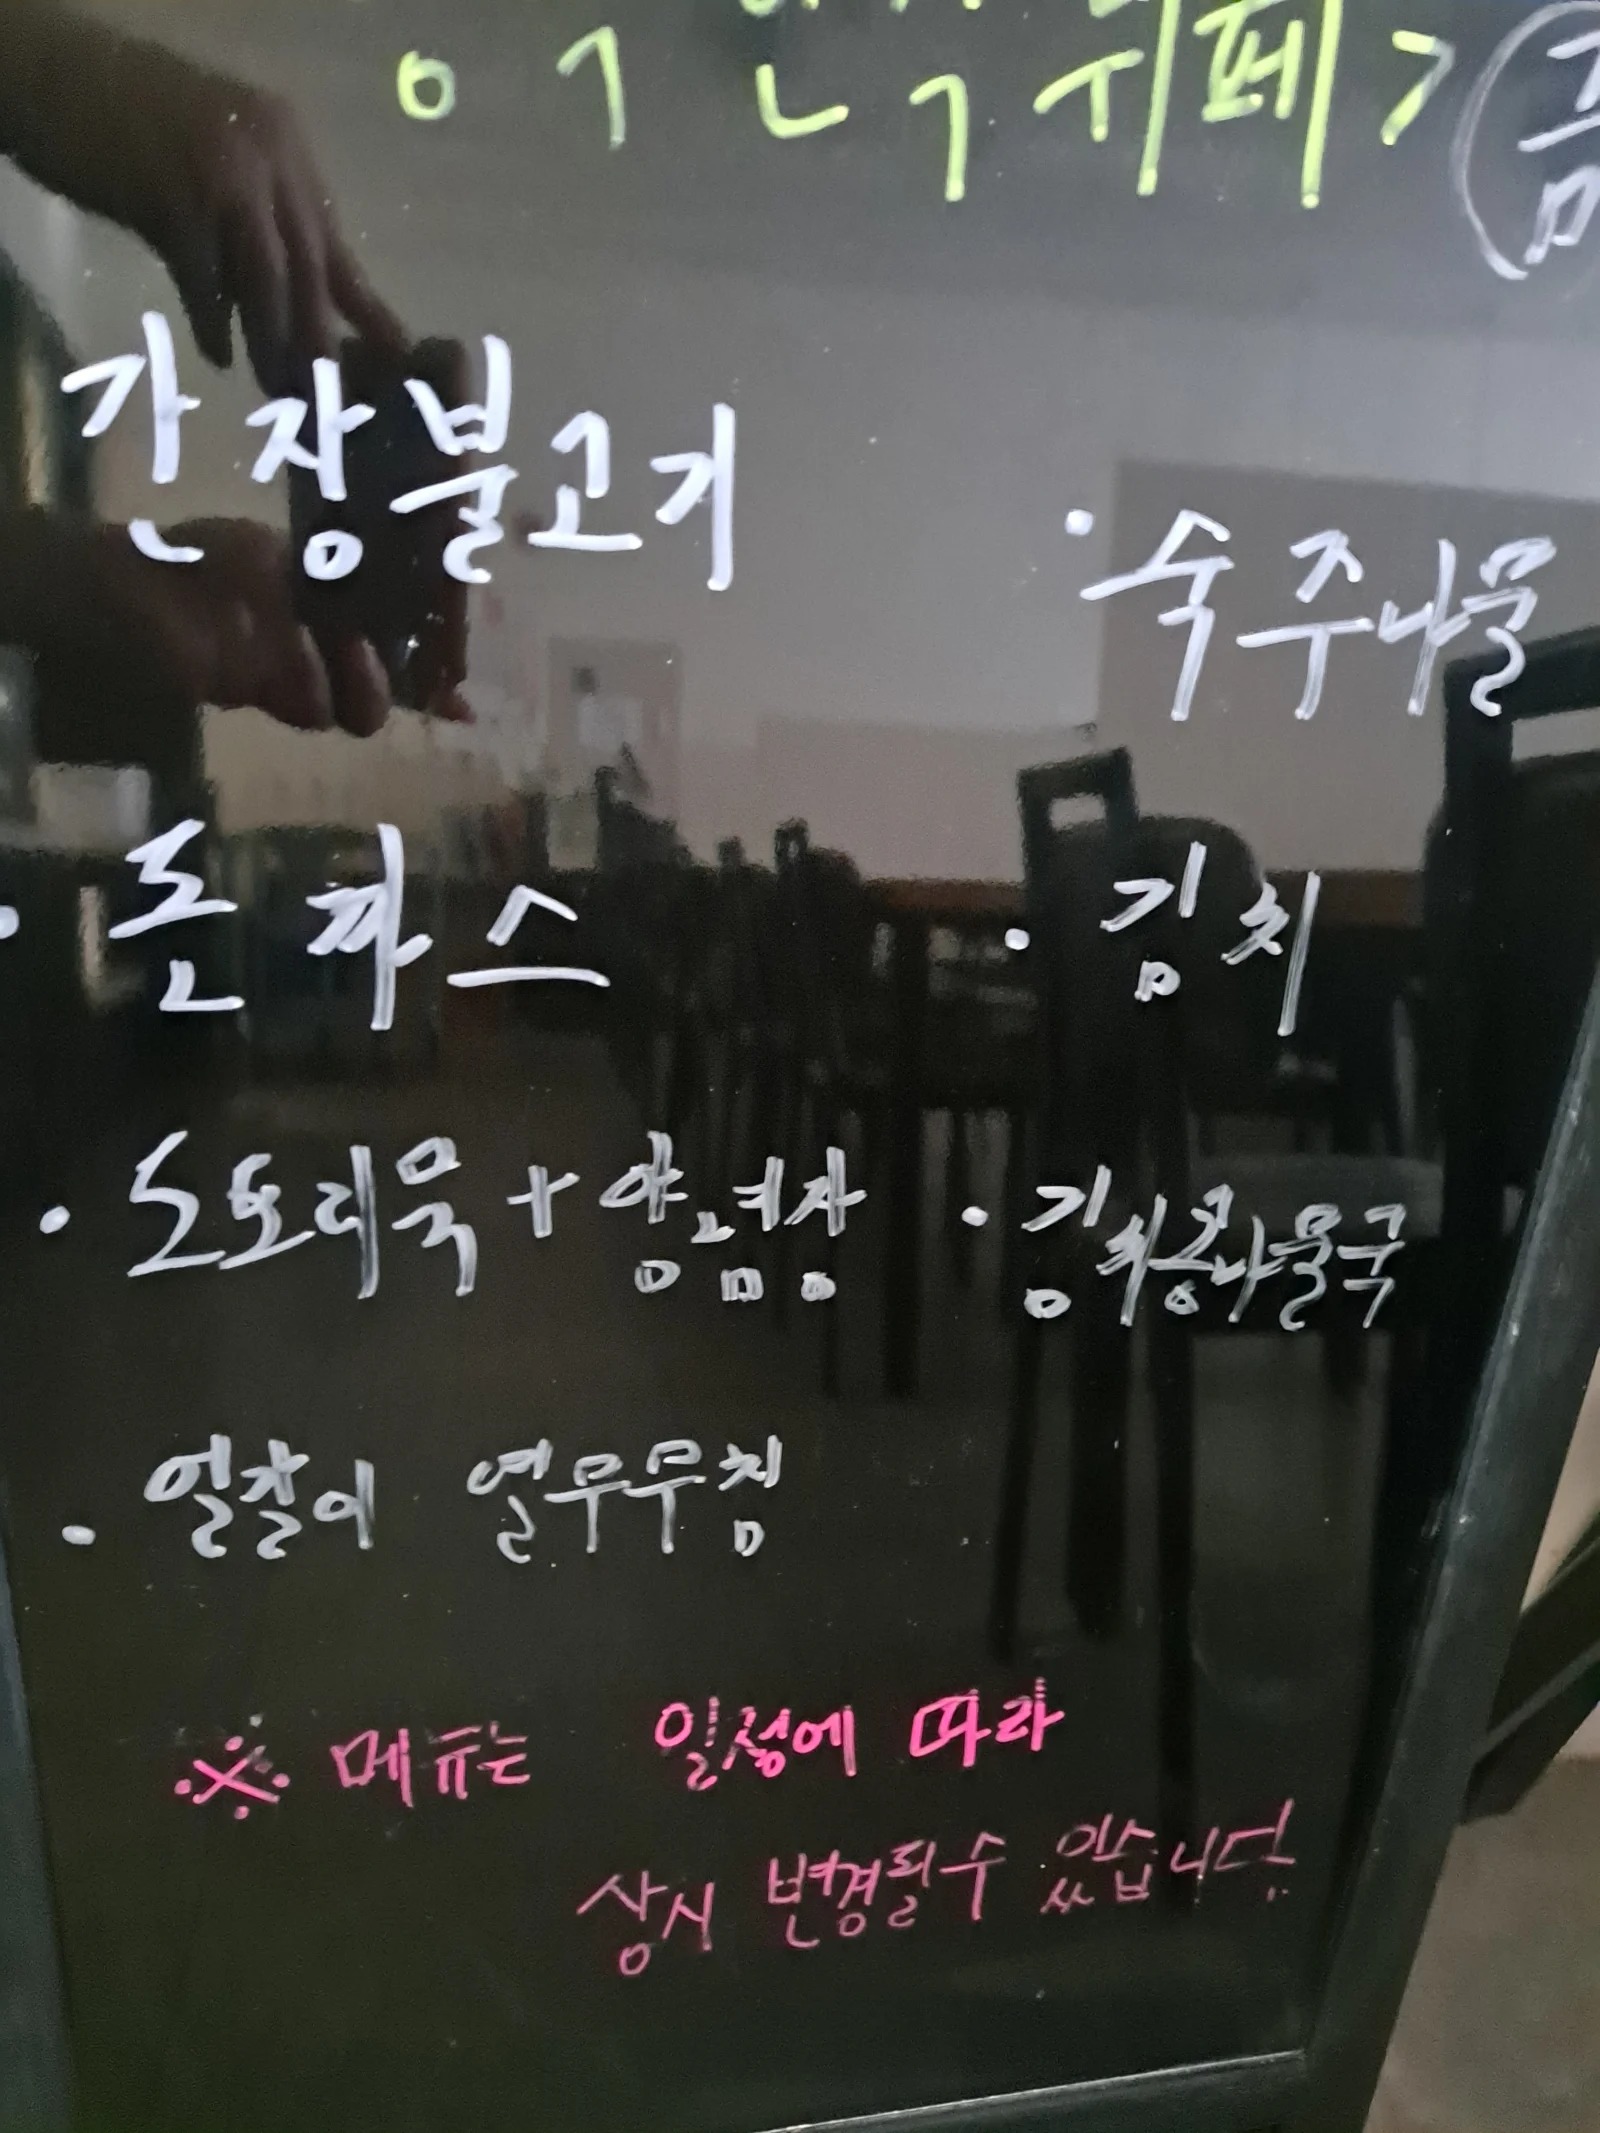 뷔페>
간장불고기
· 숙주나물
· 돈까스
· 김치
· 도토리묵+양념장
· 김치콩나물국
· 얼갈이 열무무침
※ 메뉴는 일정에 따라
상시 변경될수 있습니다.